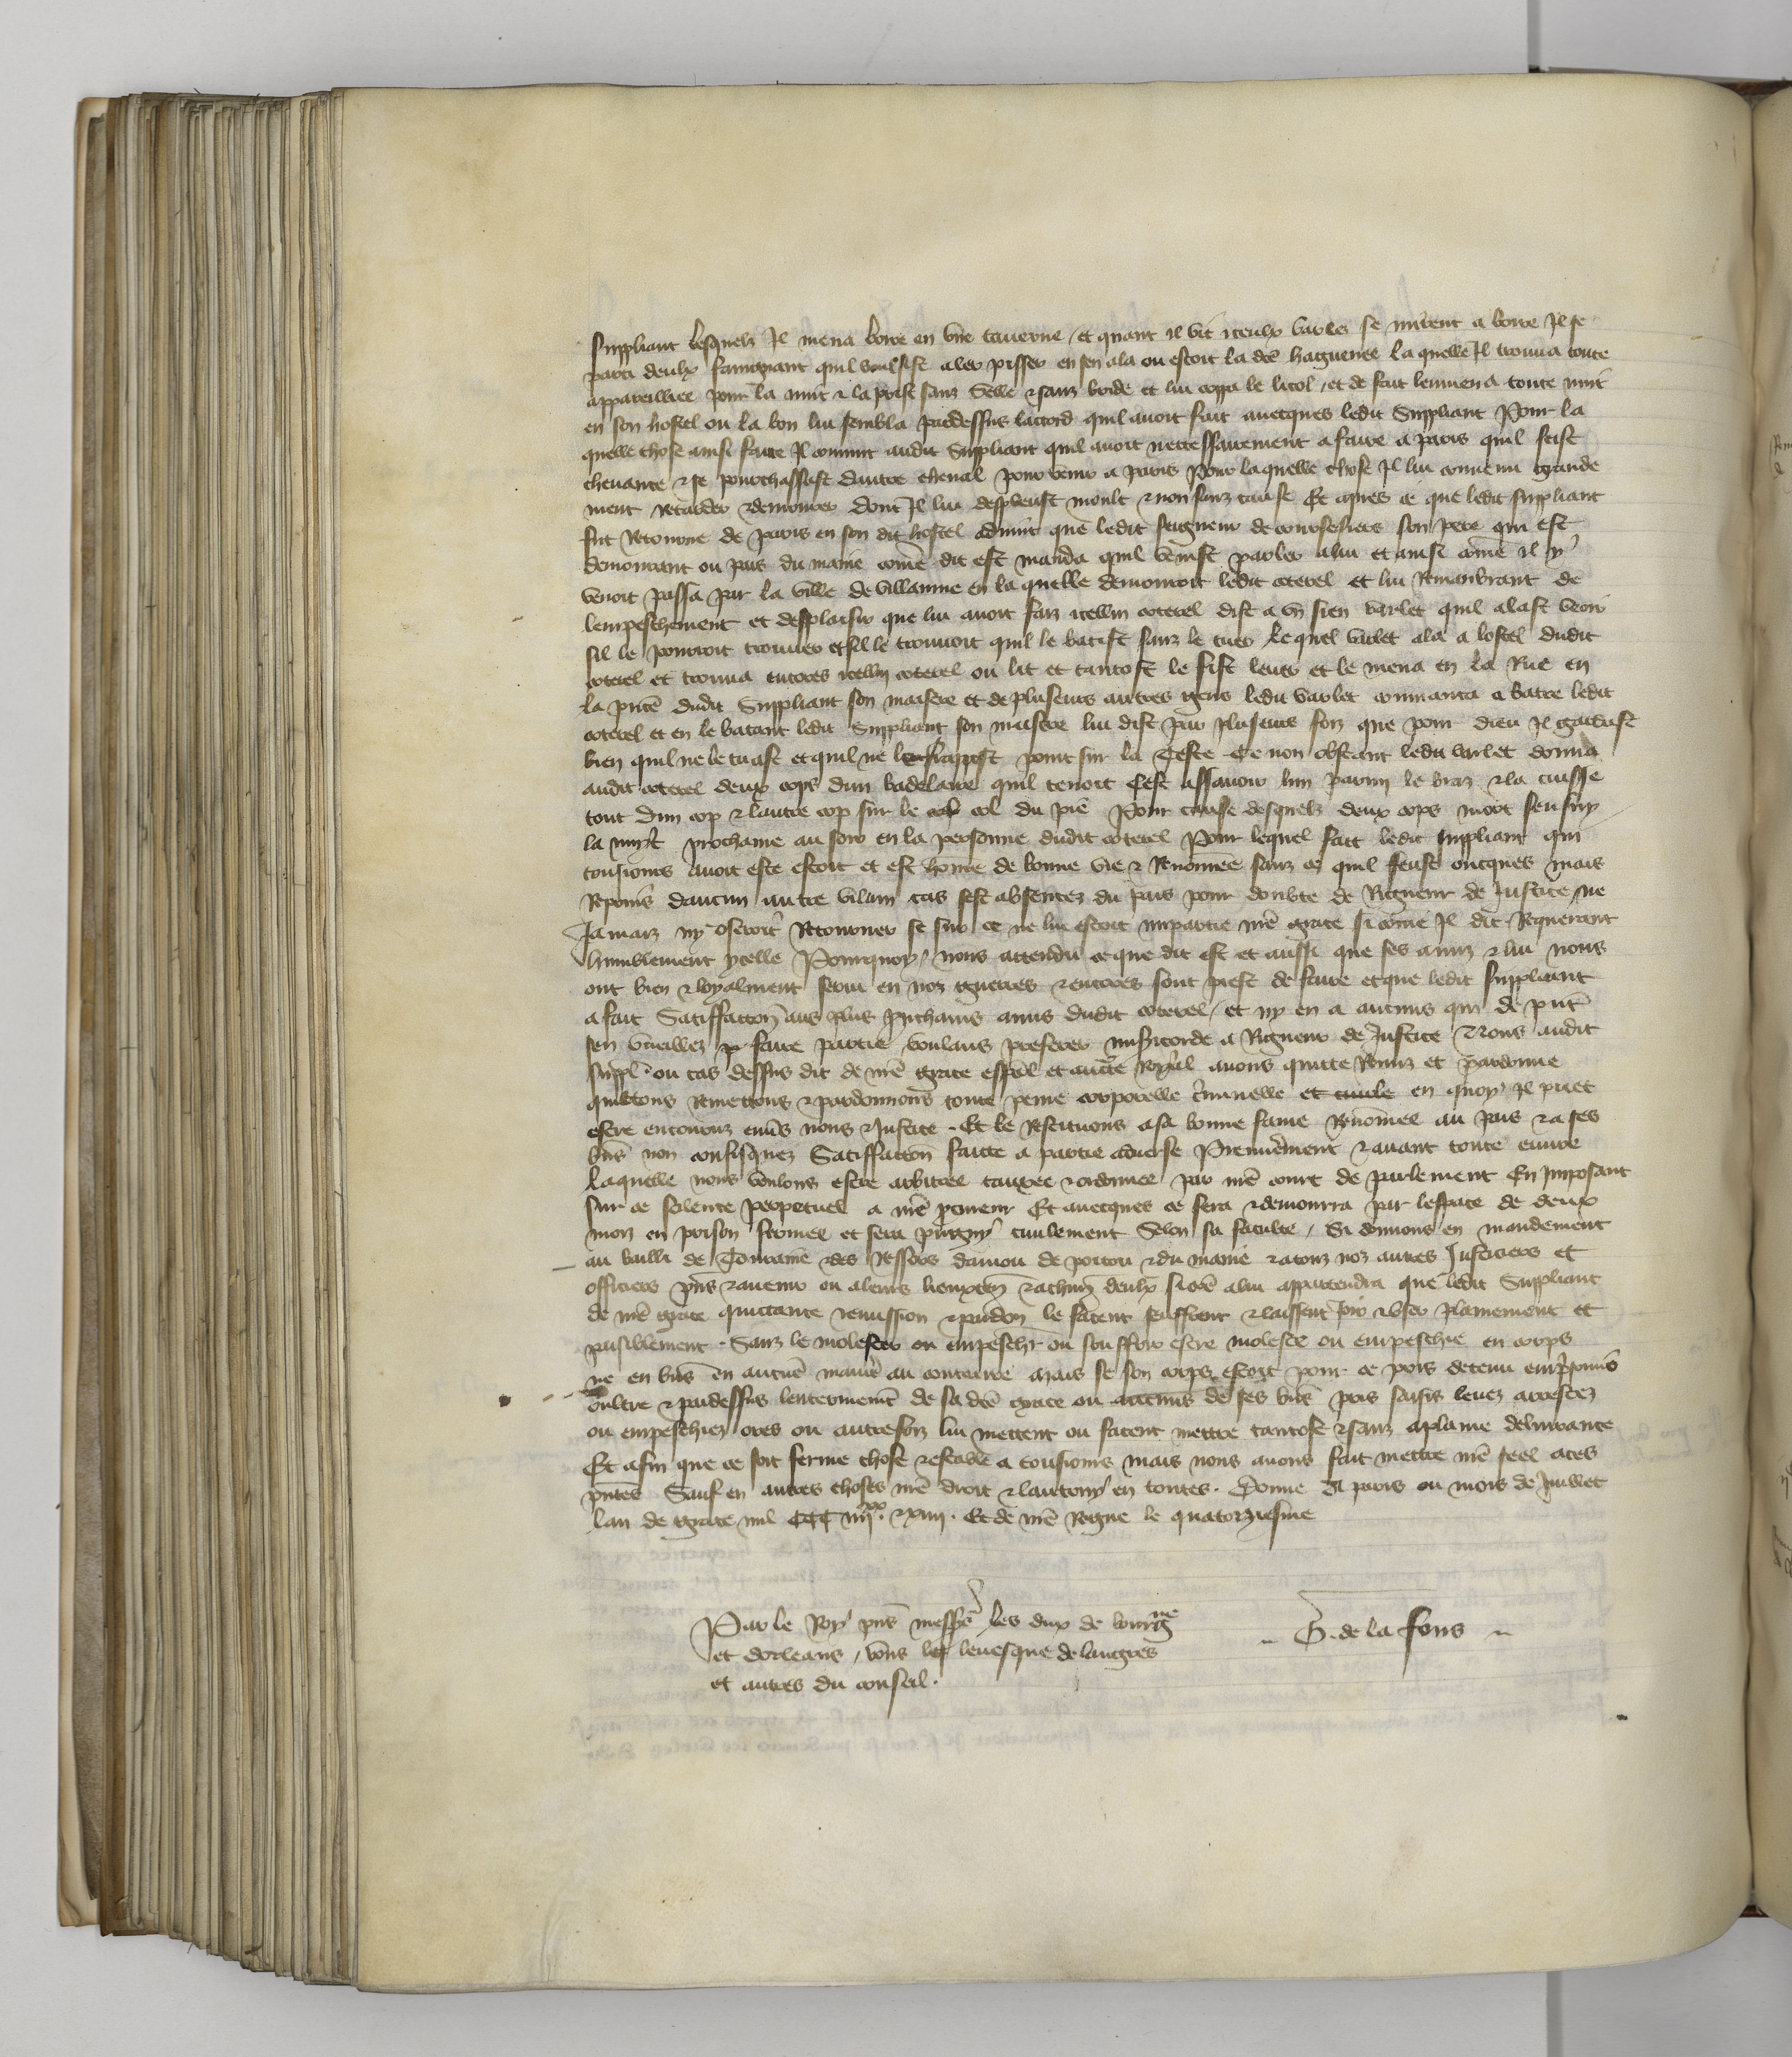 suppliant lesquelz Il mena boire en une taverne / et quant il vit iceulx varles se mirent a boire Il se
parti deulx faingnant quil voulsist aler pisser en sen ala ou estoit la dce haguenee la quelle Il trouva toute
appareilliee pour la nuit & la prist sanz selle & sanz bride et lui coppa le licol / et de fait lenmena toute nuit
en son hostel ou la bon lui sembla pardessus lacord quil avoit fait avecques ledit Suppliant Pour la
quelle chose ainsi faite Il convint audit Suppliant quil avoit necessairement a faire a paris quil feist
chevance & se pourchassast dautre cheval pour venir a paris Pour laquelle chose Il lui convenu grande
ment retarder & demourer dont Il lui despleust moult & non sanz cause Et apres ce que ledit suppliant
fut retourne de paris en son dit hostel advint que ledit seigneur de courseliers son pere qui est
demourant ou pais du maine come dit est manda quil venist parler a lui et ainsi come il y
venoit passa par la ville de villainne en la quelle demouroit ledit coterel et lui remanbrant de
lempeschement et desplaisir que lui avoit faiz icellui coterel dist a un sien varlet quil alast veoir
sil le pourroit trouver et sil le trouvoit quil le batist sanz le tuer Lequel varlet ala a lostel dudit
coterel et trouva encores icellui coterel ou lit et tantost le fist lever et le mena en la Rue en
la pnce dudit Suppliant son maistre et de pluseurs autres gens ledit varlet commanca a batre ledit
coterel et en le batant ledit Suppliant son maistre lui dist par pluseurs foiz que pour dieu Il gardast
bien quil ne le tuast et quil ne le frappast point sur la teste Ce non obstant ledit varlet donna
audit coterel deux cops dun badelaire quil tenoit Cest assavoir lun parmi le braz & la cuisse
tout dun cop & lautre cop sur le col du pie Pour cause desquelz deux cops mort sensuy
la nuyt prochaine au soir en la personne dudit coterel Pour lequel fait ledit suppliant qui
tousiours avoit este estoit et est home de bonne vie & Renommee sanz ce quil feust oncques mais
Reprins daucun autre vilain cas sest absentez du pais pour doubte de Rigueur de Justice / ne
Jamaiz ny oseroit Retourner se sur ce ne lui estoit impartie nre grace si come Il dit Requerant
humblement ycelle Pourquoy / nous attendu ce que dit est et aussi que ses amis & lui nous
ont bien & loyalment servi en noz guerres & encores sont prest de faire et que ledit suppliant
a fait Satiffaction aus plus prochains amis dudit coterel / et ny en a aucuns qui de pnt
sen vueillez faire partie voulans preferer misericorde a Rigueur de Justice Nous audit
suppl ou cas dessus dit de nre grace espal et aucte Royal avons quitte Remiz et pardonne
quictons remettons & pardonnons toute peine corporelle criminelle et civile en quoy Il puet
estre encouruz envs nous & Justice . Et le restituons a sa bonne fame Renomee au pais & a ses
bns non confisquez Satiffaction faicte a partie adverse Premierement & avant toute euvre
laquelle nous voulons estre arbitree tauxee & ordonnee par nre court de parlement En Imposant
sur ce scilence perpetuel a nre procureur Et avecques ce sera & demourra par lespace de deux
mois en prison fermee et sera pugny civilement selon sa faculte / Si donnons en mandement
au bailli de Touraine & des Ressors danjou de poitou & du maine & a touz noz autres Justiciers et
officiers pns & avenir ou a leurs lieuxten & a chun deulx si come a lui appartendra que ledit Suppliant
de nre grace quittance remission & pardon le facent seuffrent & laissent joir & user plainement et
paisiblement . Sanz le molester ou empeschr ou souffrir estre molestee ou empeschie en corps
ne en bns en aucune maniere au contraire mais se son corps estoit pour ce pris detenu emprisonne
oultre & pardessus lenterinement de sa dce grace ou aucuns de ses bns pris saisis levez arrestez
ou empeschiez ores ou autresfoiz lui mettent ou facent mettre tantost & sanz a plaine delivrance
Et afin que ce soit ferme chose & estable a tousiours mais nous avons fait mettre nre seel a ces
pntes Sauf en autres choses nre droit & lautruy en toutes . Donne A paris ou mois de Juillet
lan de grace mil CCC iiij xx & xiiij . Et de nre Regne le quatorziesme
Par le Roy pns messrs les dux de bourgne
et dorleans / vous levesque de langres
et autres du conseil .
G . de la fons